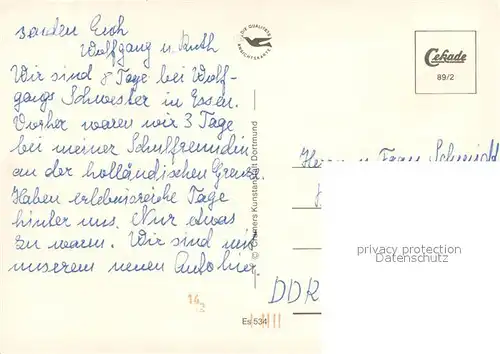 senden Euch
Wolfgang u. Ruth
Wir sind 8 Tage bei Wolf-
gangs Schwester in Essen.
Vorher waren wir 3 Tage
bei meiner Schulfreundin
an der holländischen Grenze.
Haben erlebnisreiche Tage
hinter uns. Nur etwas
zu warm. Wir sind mit
unserem neuen Auto hier.
© Cramers Kunstanstalt Dortmund
Es 534
Cekade
89/2
Herrn u. Frau Schmidt
DDR
privacy protection
Datenschutz
14
2